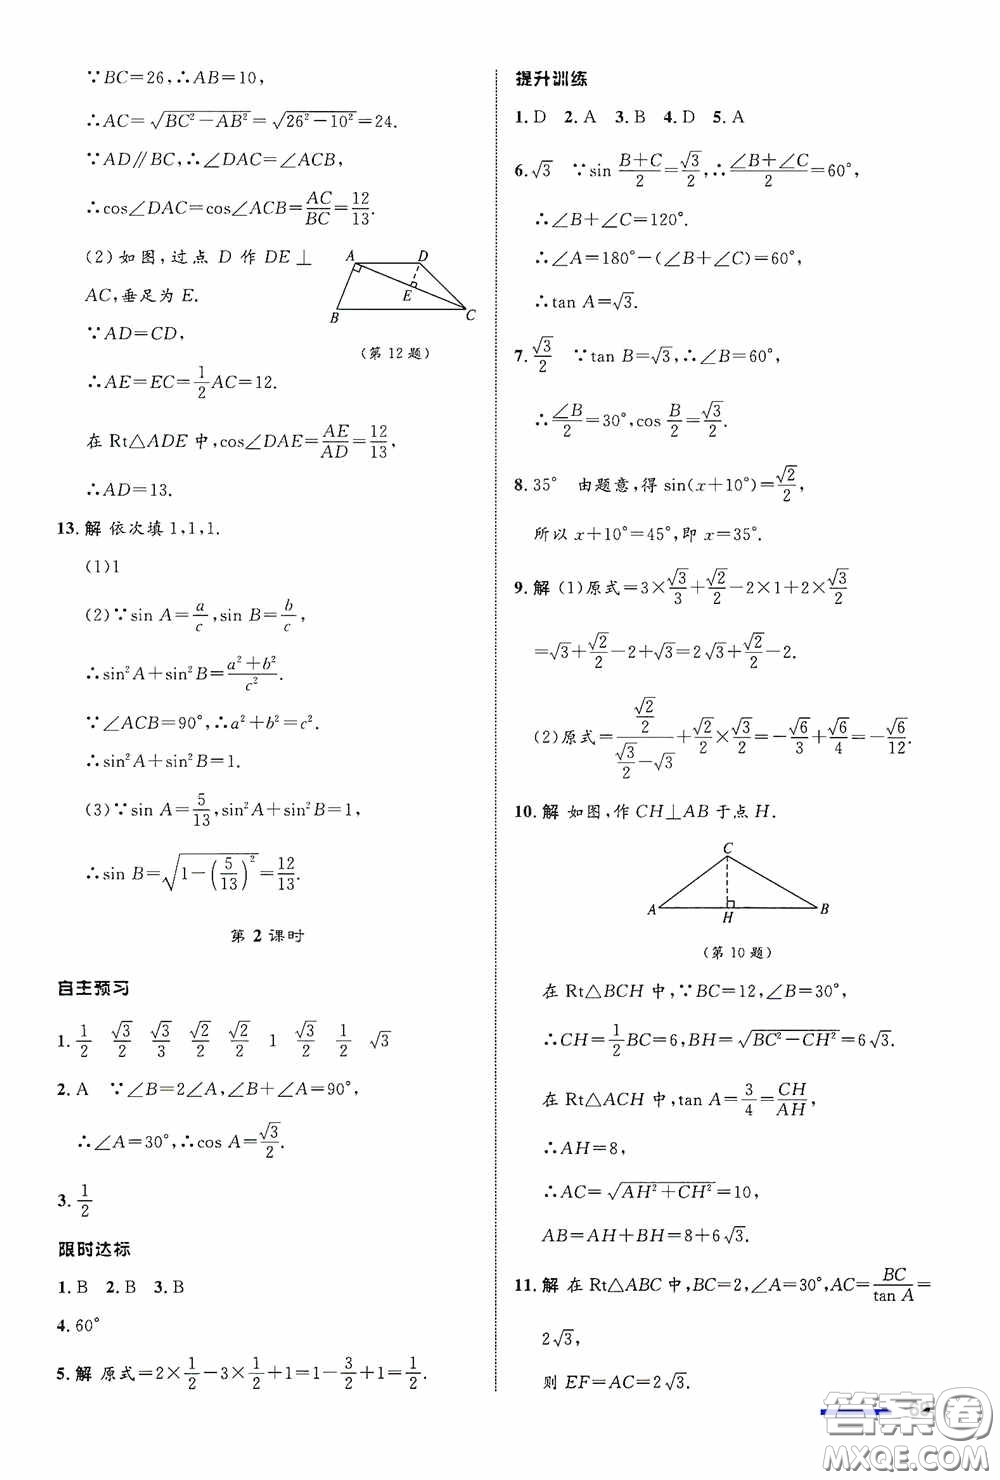 ∵BC=26,∴AB=10,
∴AC=√(BC²−AB²)=√(26²−10²)=24.
∵AD∥BC,∴∠DAC=∠ACB,
∴cos∠DAC=cos∠ACB=AC/BC=12/13.
(2)如图,过点 D 作 DE⊥
AC,垂足为 E.
∵AD=CD,
∴AE=EC=1/2AC=12.
A D
E
B C
(第 12 题)
在 Rt△ADE 中,cos∠DAE=AE/AD=12/13,
∴AD=13.
13. 解 依次填 1,1,1.
(1)1
(2)∵sin A=a/c,sin B=b/c,
∴sin²A+sin²B=(a²+b²)/c².
∵∠ACB=90°,∴a²+b²=c².
∴sin²A+sin²B=1.
(3)∵sin A=5/13,sin²A+sin²B=1,
∴sin B=√(1−(5/13)²)=12/13.
第 2 课时
自主预习
1. 1/2 √3/2 √3/3 √2/2 √2/2 1 √3/2 1/2 √3
2. A ∵∠B=2∠A,∠B+∠A=90°,
∴∠A=30°,∴cos A=√3/2.
3. 1/2
限时达标
1. B 2. B 3. B
4. 60°
5. 解 原式=2×1/2−3×1/2+1=1−3/2+1=1/2.
提升训练
1. D 2. A 3. B 4. D 5. A
6. √3 ∵sin (B+C)/2=√3/2,∴(∠B+∠C)/2=60°,
∴∠B+∠C=120°.
∴∠A=180°−(∠B+∠C)=60°,
∴tan A=√3.
7. √3/2 ∵tan B=√3,∴∠B=60°,
∴∠B/2=30°,cos B/2=√3/2.
8. 35° 由题意,得 sin(x+10°)=√2/2,
所以 x+10°=45°,即 x=35°.
9. 解 (1)原式=3×√3/3+√2/2−2×1+2×√3/2
=√3+√2/2−2+√3=2√3+√2/2−2.
(2)原式=(√2/2)/(√3/2−√3)+√2/2×√3/2=−√6/3+√6/4=−√6/12.
10. 解 如图,作 CH⊥AB 于点 H.
C
A H B
(第 10 题)
在 Rt△BCH 中,∵BC=12,∠B=30°,
∴CH=1/2BC=6,BH=√(BC²−CH²)=6√3.
在 Rt△ACH 中,tan A=3/4=CH/AH,
∴AH=8,
∴AC=√(AH²+CH²)=10,
AB=AH+BH=8+6√3.
11. 解 在 Rt△ABC 中,BC=2,∠A=30°,AC=BC/tan A=
2√3,
则 EF=AC=2√3.
答案卷
MXQE.COM